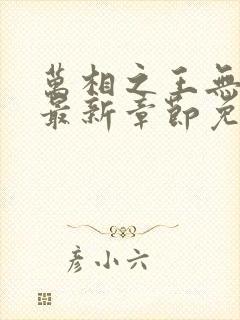 萬相之王無
最新章節免
彦小六